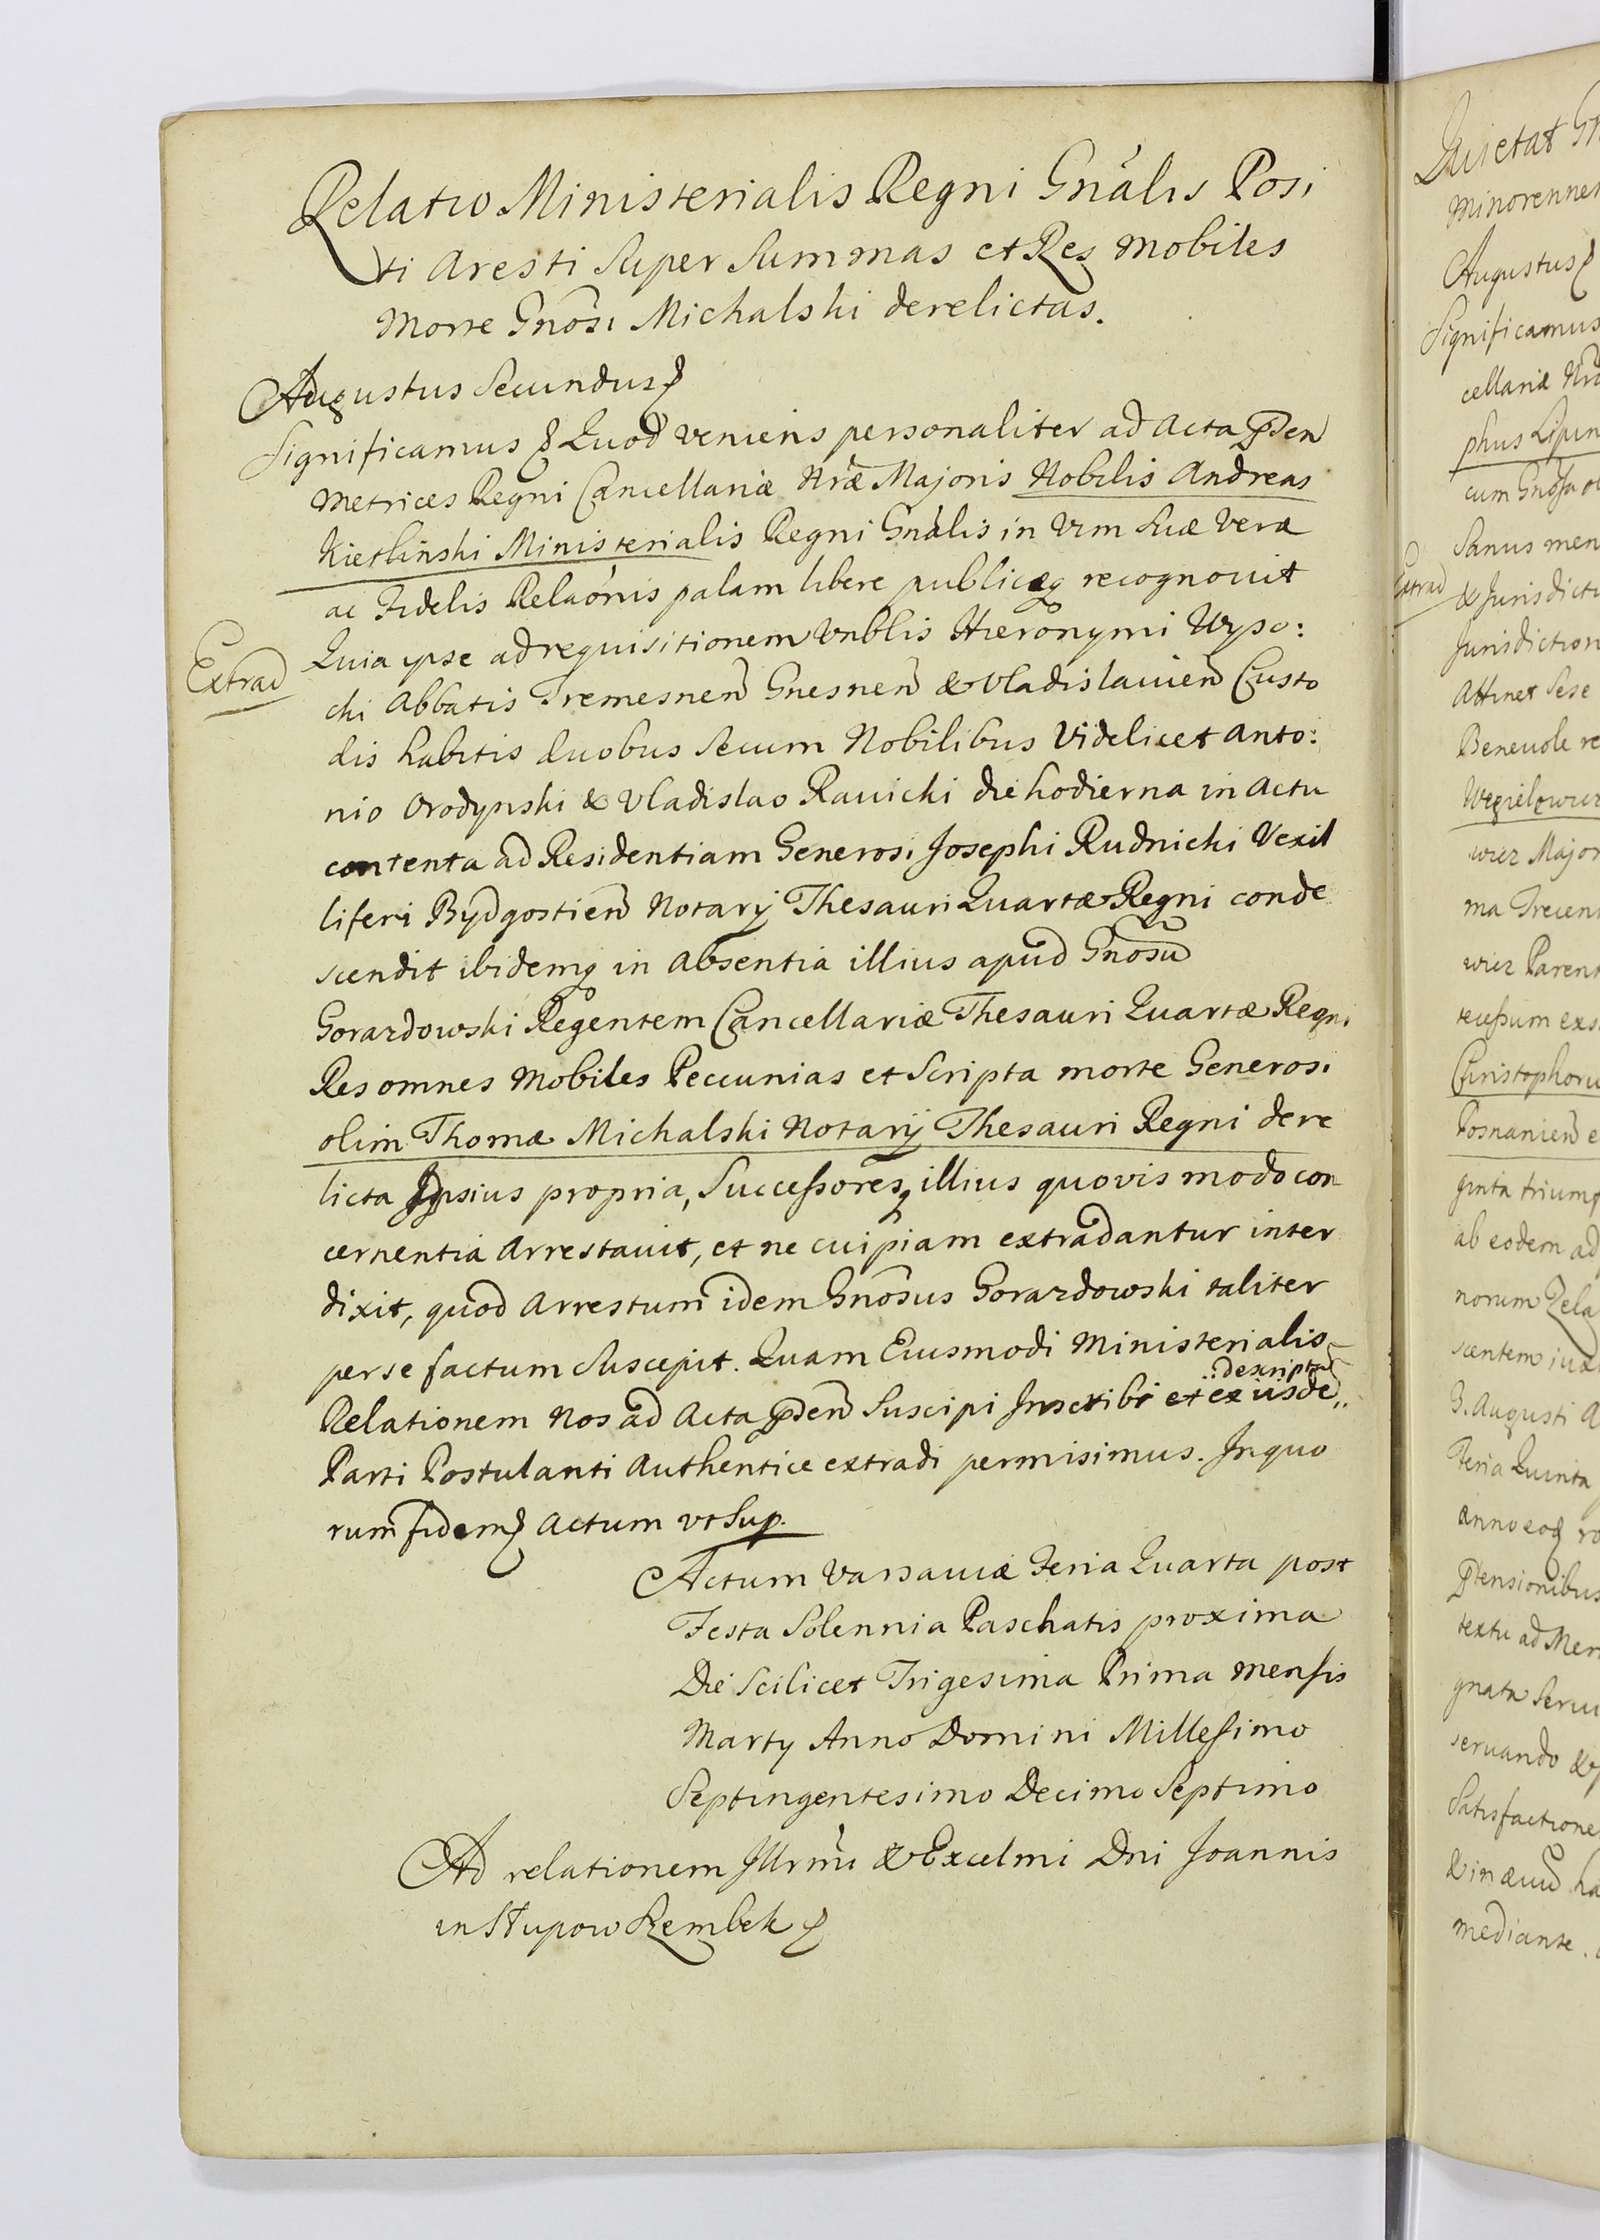 Relatio Ministerialis Regni Gnâlis Posi
ti Aresti Super Summas et Res Mobiles
Morte Gnosi Michalski derelictas.
Augustus Secundus
Significamus Quod veniens personaliter ad Acta pñden
Metrices Regni Cancellariæ Nræ Majoris Nobilis Andreas
Kietlinski Ministerialis Regni Gnâlis in Vim Suæ Veræ
ac Fidelis Relaonis palam libere publicæq recognovit
Extrad
Quia ipse ad requisitionem Vnblis Hieronymi Wyso:
cki Abbatis Tremesnen Gnesnen & Vladislavien Custo
dis habitis duobus Secum Nobilibus Videlicet Anto:
nio Orodynski & Vladislao Ravicki die hodierna in Actu
contenta ad Residentiam Generosi Josephi Rudnicki Vexil
liferi Bydgostien Notarij Thesauri Quartæ Regni conde
scendit ibidemq in Absentia illius apud Gnosu
Gorazdowski Regentem Cancellariæ Thesauri Quartæ Regni
Res omnes Mobiles Peccunias et Scripta morte Generosi
olim Thomæ Michalski Notarij Thesauri Regni dere
licta Ipsius propria, Successoresq illius quovis modo con
cernentia Arrestavit, et ne cuipiam extradantur inter
dixit, quod Arrestum idem Gnosus Gorazdowski taliter
per se factum Suscepit. Quam Eiusmodi Ministerialis
descripta
Relationem Nos ad Acta pñden Suscipi Inscribi et ex iisde
Parti Postulanti Authentice extradi permisimus. In quo
rum fidem Actum vt Sup.
Actum Varsaviæ Feria Quarta post
Festa Solennia Paschatis proxima
Die Scilicet Trigesima Prima Mensis
Martij Anno Domini Millesimo
Septingentesimo Decimo Septimo
Ad relationem Illrmi & Excelmi Dni Joannis
in Słupow Szembek
Quietat
Minorennes
Augustus
Significamus
cellariæ Nræ
phus Lipin
cum Gnosa ol
Extrad
Sanus men
& Jurisdicti
Jurisdiction
Attinet Sese
Benevole re
wicz Major
ma Trecen
wicz Parent
Christophoru
Posnanien e
ginta trium
ab eodem ad
norum Zela
3. Augusti A
Feria Quinta
Anno eoq
ptensionibus
textu ad Mer
gnata Serv
servando &
Satisfactione
& in ævu ha
mediante.